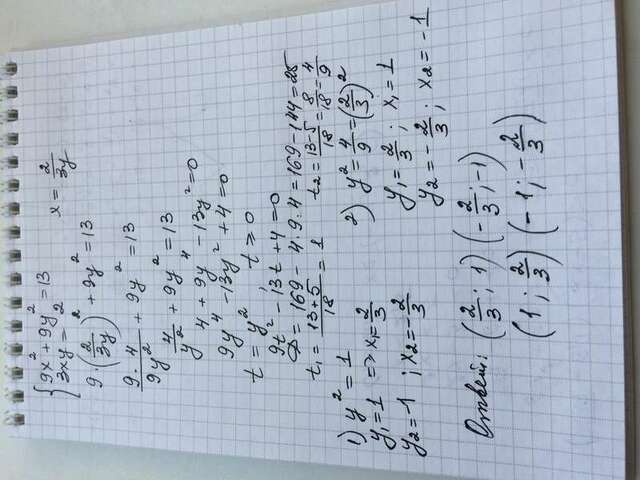 { 9x² + 9y² = 13
3xy = 2    x = 2/(3y)
9·(2/(3y))² + 9y² = 13
(9·4)/(9y²) + 9y² = 13
4/y² + 9y² = 13
4 + 9y⁴ - 13y² = 0
9y⁴ - 13y² + 4 = 0
t = y², t ≥ 0
9t² - 13t + 4 = 0
D = 169 - 4·9·4 = 169 - 144 = 25
t₁ = (13+5)/18 = 1    t₂ = (13-5)/18 = 8/18 = 4/9
1) y² = 1
y₁ = 1 => x₁ = 2/3
y₂ = -1 ; x₂ = -2/3
2) y² = 4/9 = (2/3)²
y₁ = 2/3 ; x₁ = 1
y₂ = -2/3 ; x₂ = -1
Ответ: (2/3 ; 1) (-2/3 ; -1)
(1 ; 2/3) (-1 ; -2/3)